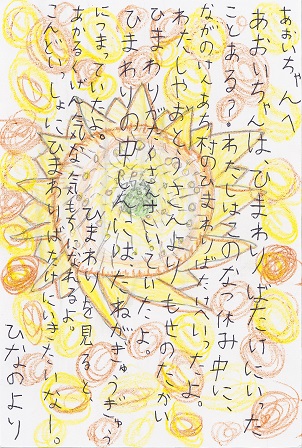 あおいちゃんへ
あおいちゃんは、ひまわりばたけにいった
ことある？わたしはこのなつ休み中に、
ながのけんあち村のひまわりばたけへいったよ。
わたしやおとうさんよりもせのたかい
ひまわりがたくさんさいていたよ。
ひまわりの中しんには、たねがぎゅうぎゅう
につまっていたよ。
ひまわりを見ると、
あかるいげん気な気もちになれるよ。
こんどいっしょにひまわりばたけにいきたいなー。
ひなのより